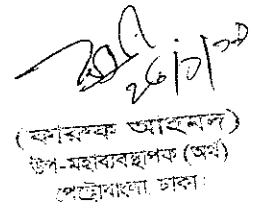 ২৬|১|১১
(ফারুক আহমদ)
উপ-মহাব্যবস্থাপক (অর্থ)
পেট্রোবাংলা ঢাকা।